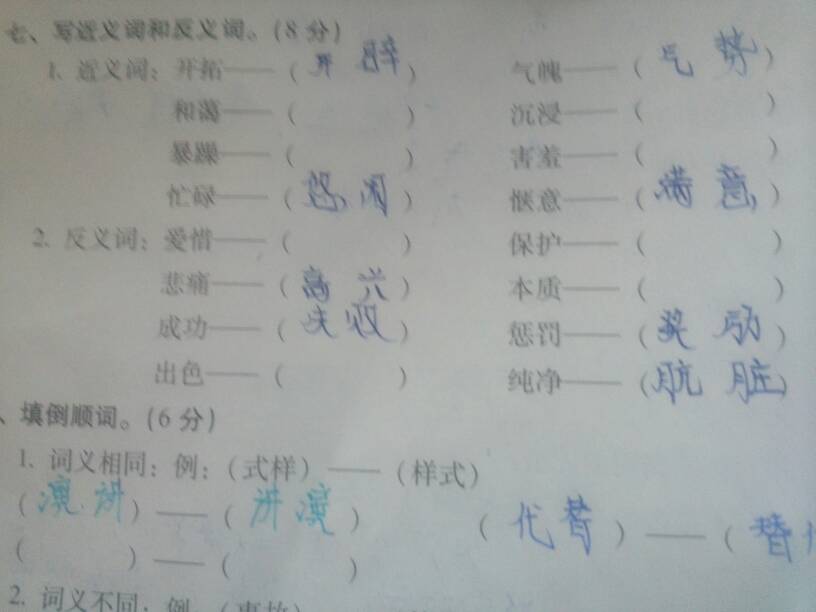 七、写近义词和反义词。(8分)
1. 近义词：开拓——(开辟) 气魄——(气势)
和蔼——( ) 沉浸——( )
暴躁——( ) 害羞——( )
忙碌——(悠闲) 惬意——(满意)
2. 反义词：爱惜——( ) 保护——( )
悲痛——(高兴) 本质——( )
成功——(失败) 惩罚——(奖励)
出色——( ) 纯净——(肮脏)
、填倒顺词。(6分)
1. 词义相同：例：(式样)——(样式)
(演讲)——(讲演) (代替)——(替代
( )——( )
2. 词义不同：例：(事故)